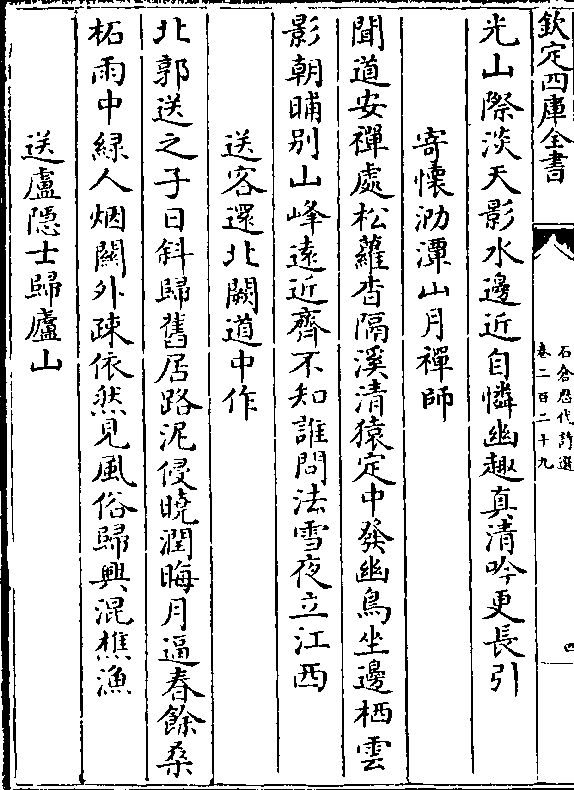 欽定四庫全書
石倉歷代詩選
卷二百二十九
四
光山際淡天影水邊近自憐幽趣真清吟更長引
寄懷泐潭山月禪師
聞道安禪處松蘿杳隔溪清猿定中發幽鳥坐邊栖雲
影朝晡别山峰遠近齊不知誰問法雪夜立江西
送客還北闕道中作
北郭送之子日斜歸舊居路泥侵曉潤晦月逼春餘桑
柘雨中緑人烟關外疎依然見風俗歸興混樵漁
送盧隱士歸廬山